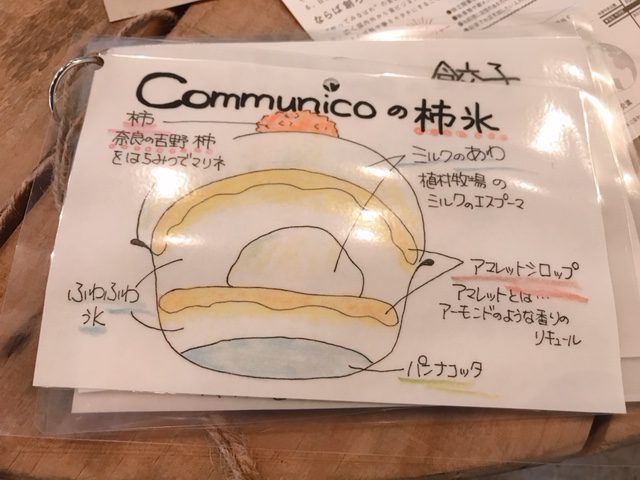 Communicoの柿氷
柿
奈良の吉野柿
をはちみつでマリネ
ミルクのあわ
植村牧場の
ミルクのエスプーマ
アマレットシロップ
アマレットとは…
アーモンドのような香りの
リキュール
ふわふわ
氷
パンナコッタ